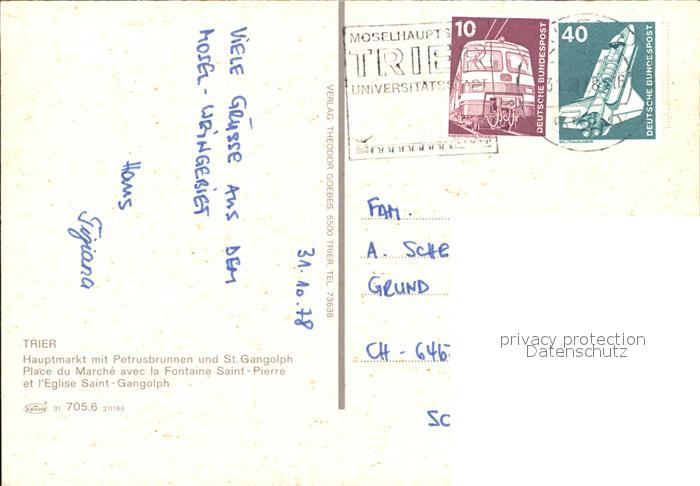 VIELE GRÜSSE AUS DEM
MOSEL - WEINGEBIET
Hans
Tiziana
31.10.78
TRIER
Hauptmarkt mit Petrusbrunnen und St. Gangolph
Place du Marché avec la Fontaine Saint-Pierre
et l'Eglise Saint-Gangolph
31 705.6 211186
VERLAG: THEODOR GOEBES, 5500 TRIER, TEL. 73638
MOSELHAUPTS
TRIER
UNIVERSITÄTS
10
DEUTSCHE BUNDESPOST
40
DEUTSCHE BUNDESPOST
WELTRAUMLABOR
FAM.
A. SCHE
GRUND
CH - 646
SC
privacy protection
Datenschutz